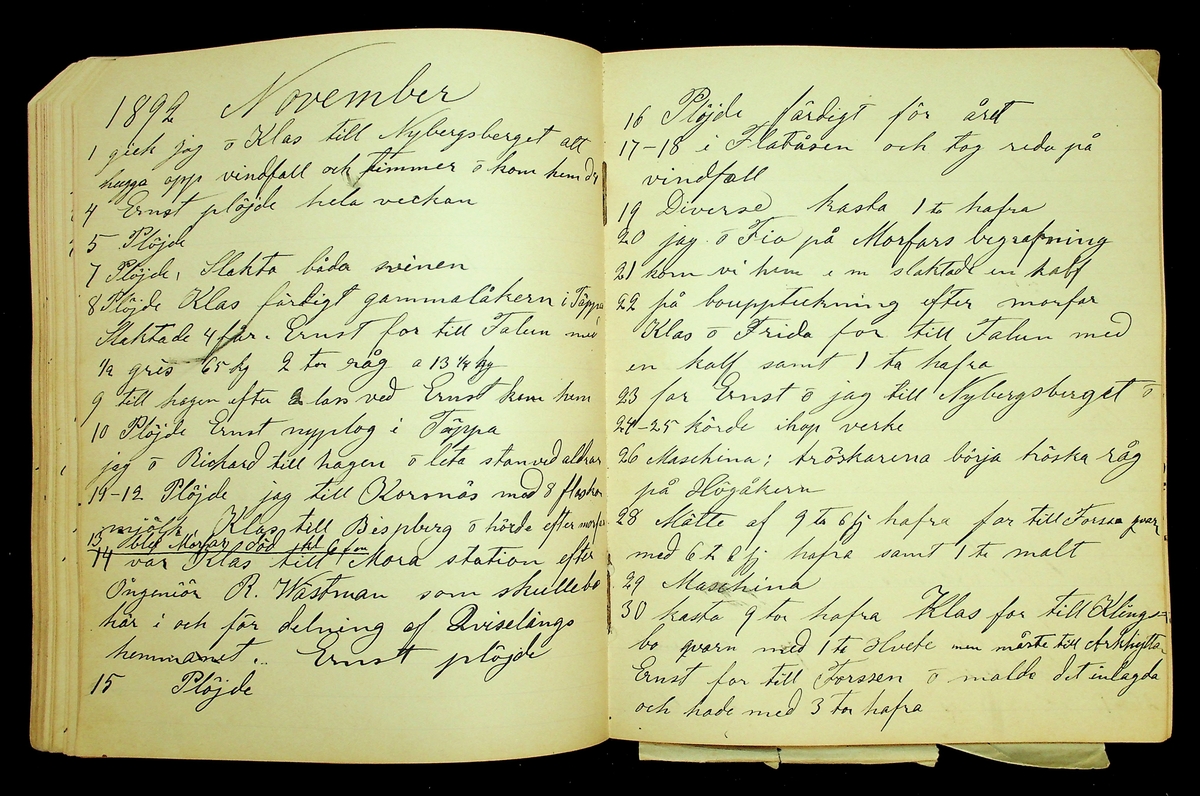 1892 November
1 gick jag o Klas till Nybergsberget att
hugga opp vindfall och timmer o kom hem d 4
4 Ernst plöjde hela veckan
5 Plöjde
7 Plöjde, Slakta båda svinen
8 Plöjde Klas färdigt gammalåkern i Täppa
Slaktade 4 får. Ernst for till Falun med
1/2 gris 65 kg 2 tor råg a 13 1/4 kg
9 till hagen efter 2 lass ved Ernst kom hem
10 Plöjde Ernst nyplog i Täppa
jag o Richard till hagen o leta stanved aldrar
11-12 Plöjde jag till Korsnäs med 8 flaskor
mjölk Klas till Bispberg o hörde efter morfar
13 blef Morfar död kl 6 fm
14 var Klas till Mora station efter
Ingeniör R. Wästman som skulle bo
här i och för delning af Qviselängs
hemmanet. Ernst plöjde
15 Plöjde
16 Plöjde färdigt för året
17-18 i Flatåsen och tog reda på
vindfall
19 Diverse kasta 1 to hafra
20 jag o Fia på Morfars begrafning
21 kom vi hem e m slaktade en kalf
22 på bouppteckning efter morfar
Klas o Frida for till Falun med
en kalf samt 1 to hafra
23 for Ernst o jag till Nybergsberget o
24-25 körde ihop verke
26 Maschina; tröskarena börja tröska råg
på Högåkern
28 Mätte af 9 to 6 fj hafra for till Forssa qvarn
med 6 to 2 fj hafra samt 1 to malt
29 Maschina
30 kasta 9 tor hafra Klas for till Klinge
bo qvarn med 1 to Hvete men måste till Arkhyttan
Ernst for till Forssen o malde det inlagda
och hade med 3 tor hafra